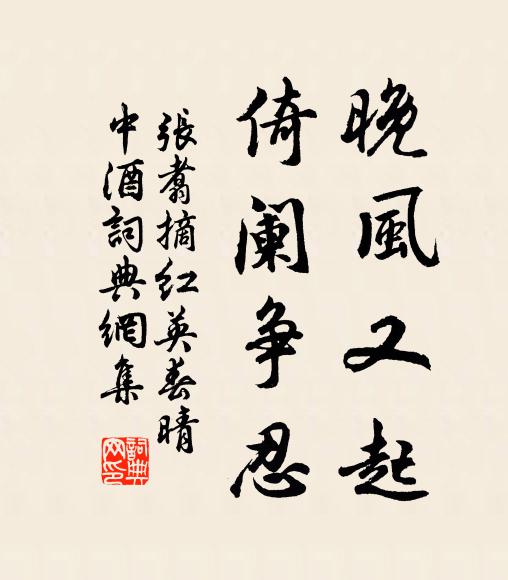 晚風又起
倚阑争忍
張翥摘红英春晴
中酒詞典網集
詞典
网印